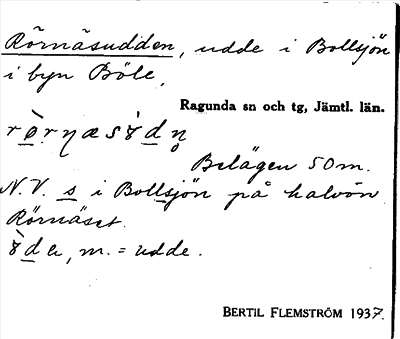 Rörnäsudden, udde i Bollsjön
i byn Böle,
Ragunda sn och tg, Jämtl. län.
Belägen 50 m.
N.V. s i Bollsjön på halvön
Rörnäset.
m. = udde.
BERTIL FLEMSTRÖM 1937.